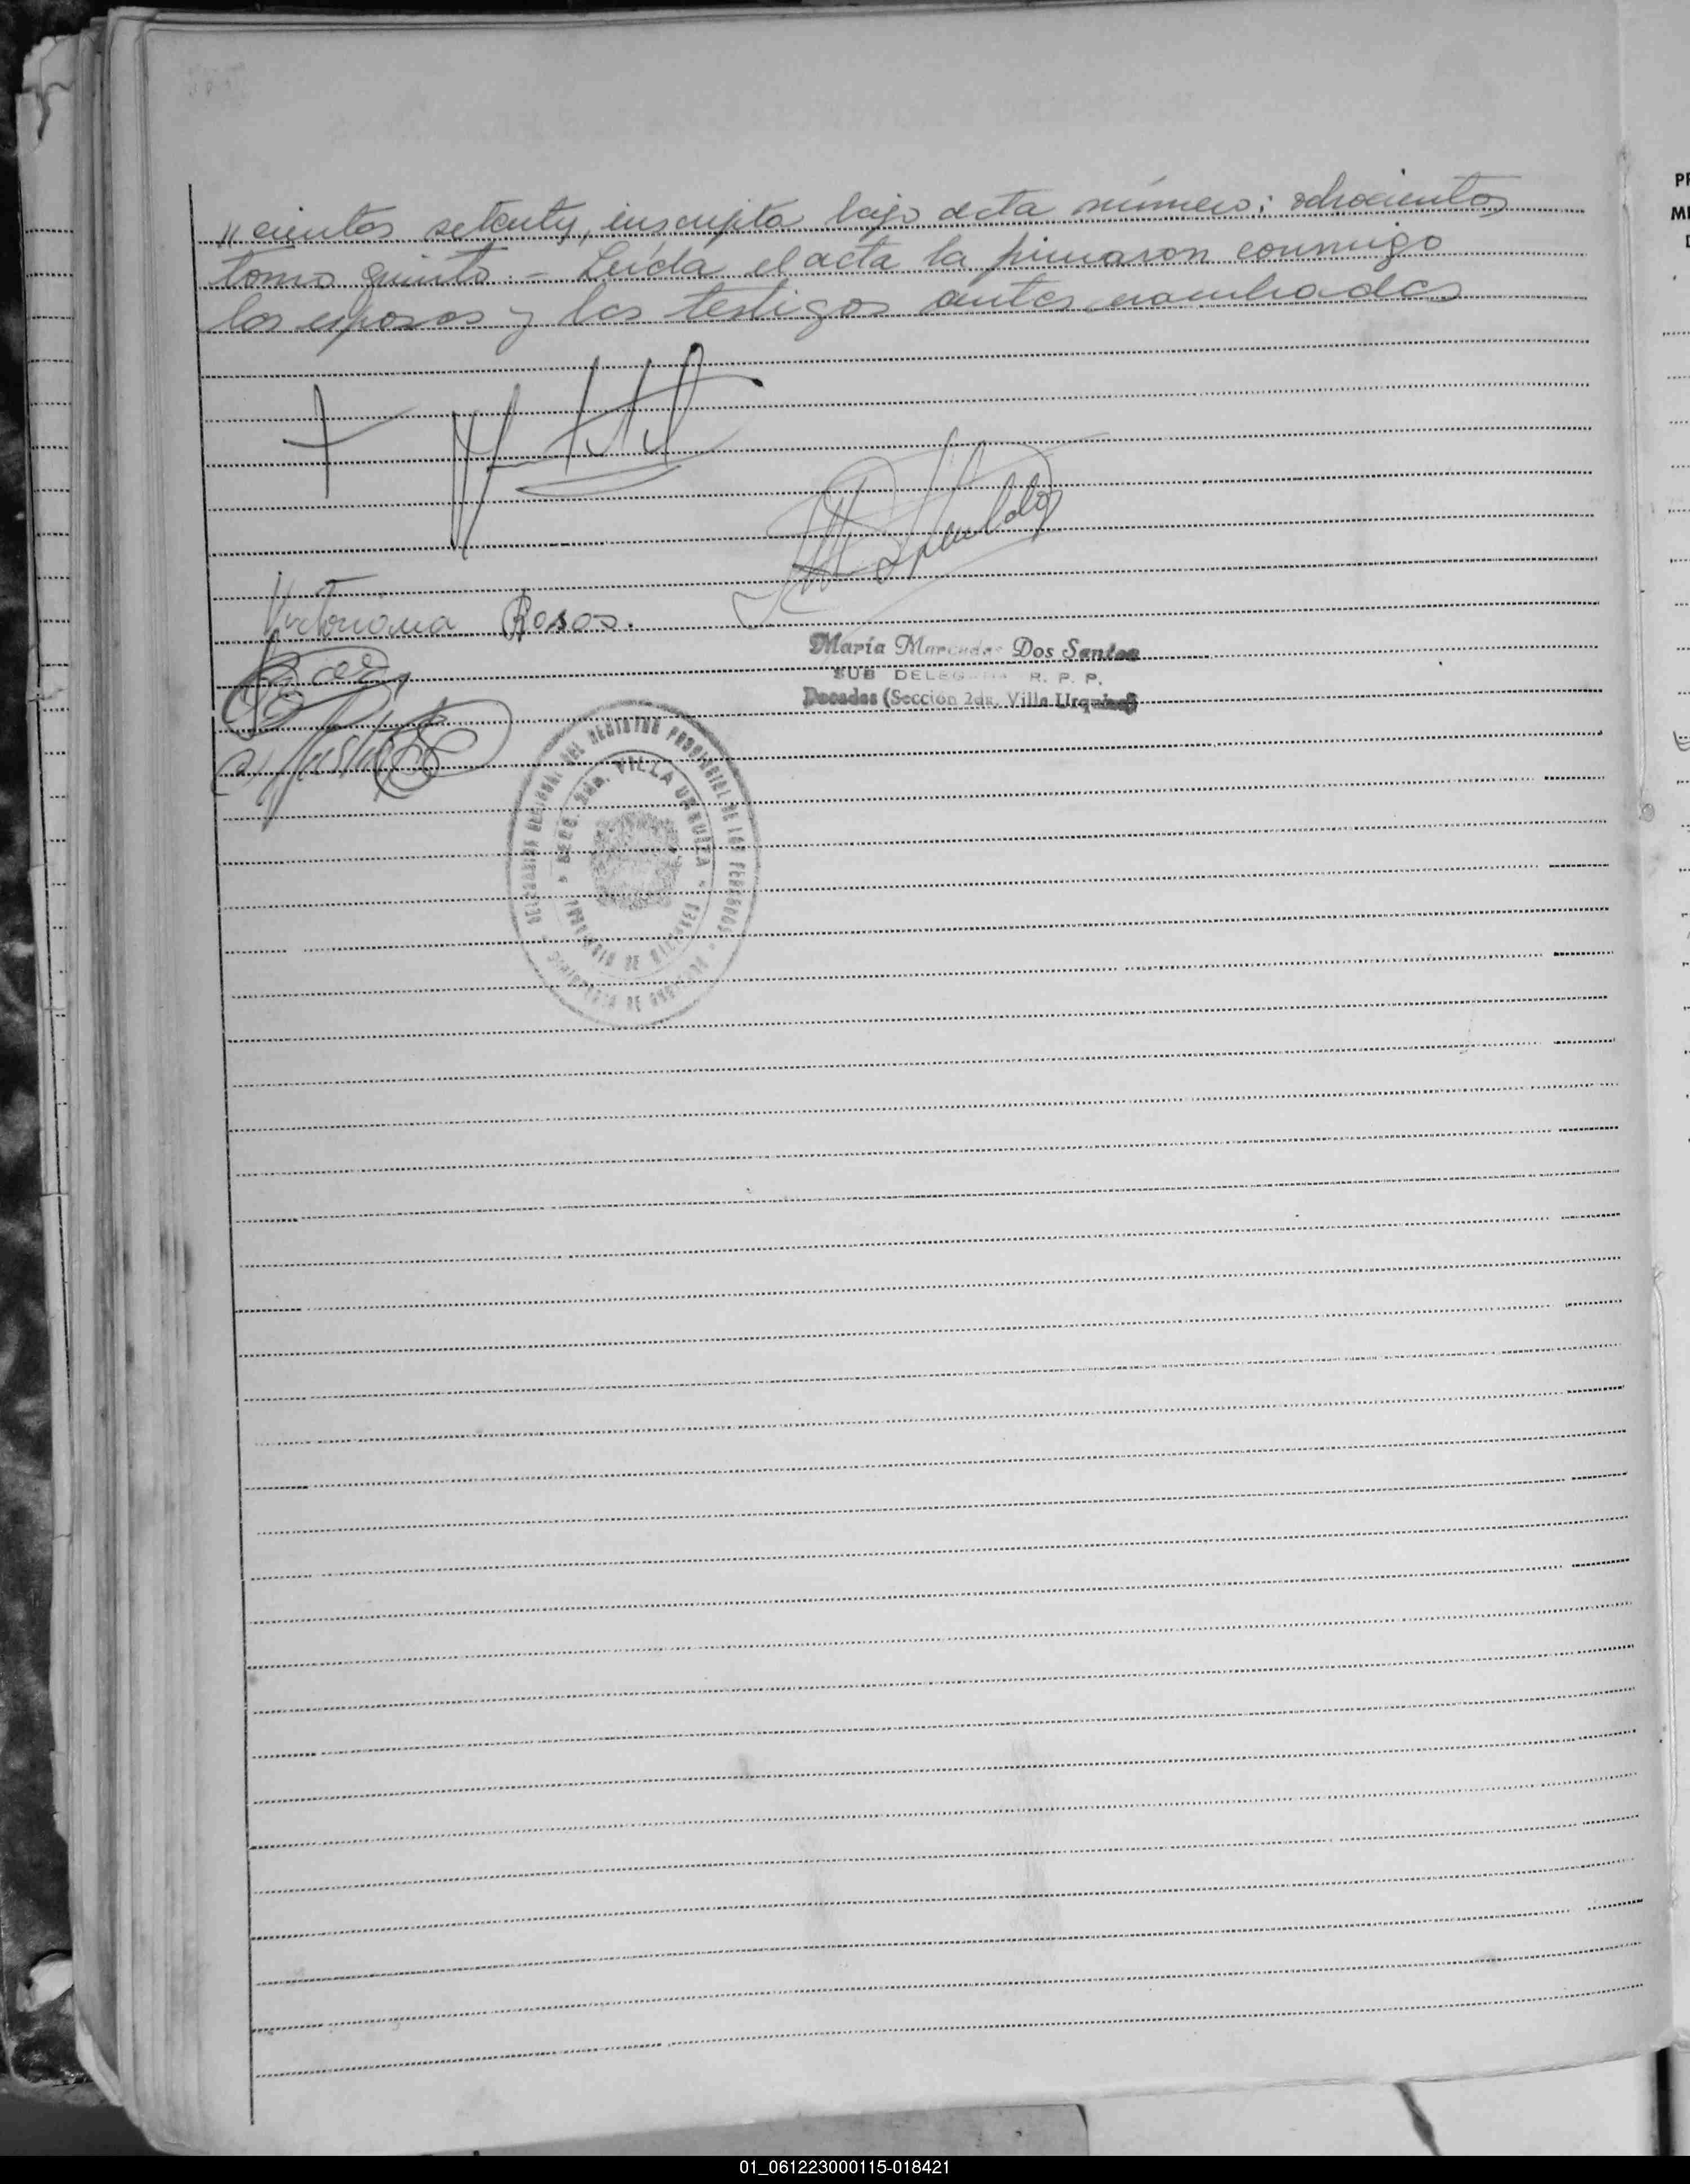 "cientos setenty, inscripta bajo acta número: ochocientos
tomo quinto. - Leída el acta la firmaron conmigo
los esposos y los testigos antes nombrados
Victoriana Rosos.
María Mercedes Dos Santos
SUB DELEGADA R. P. P.
Posadas (Sección 2da. Villa Urquiza)
DEL REGISTRO PROVINCIAL DE LAS PERSONAS
SECC. 2DA. VILLA URQUIZA
PROVINCIA DE MISIONES
PR
MI
D
01_061223000115-018421